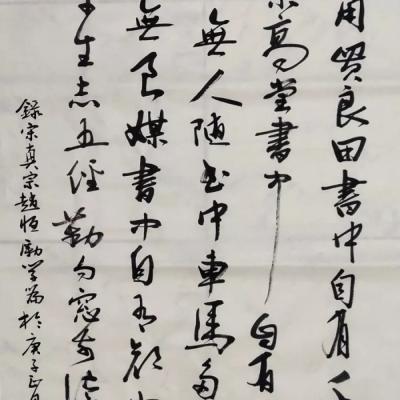 用買良田書中自有千
高堂書中自有
無人随書中車馬多
無良媒書中自有顔
生志五經勤向窓前讀
錄宋真宗趙恒勵學篇於庚子正月